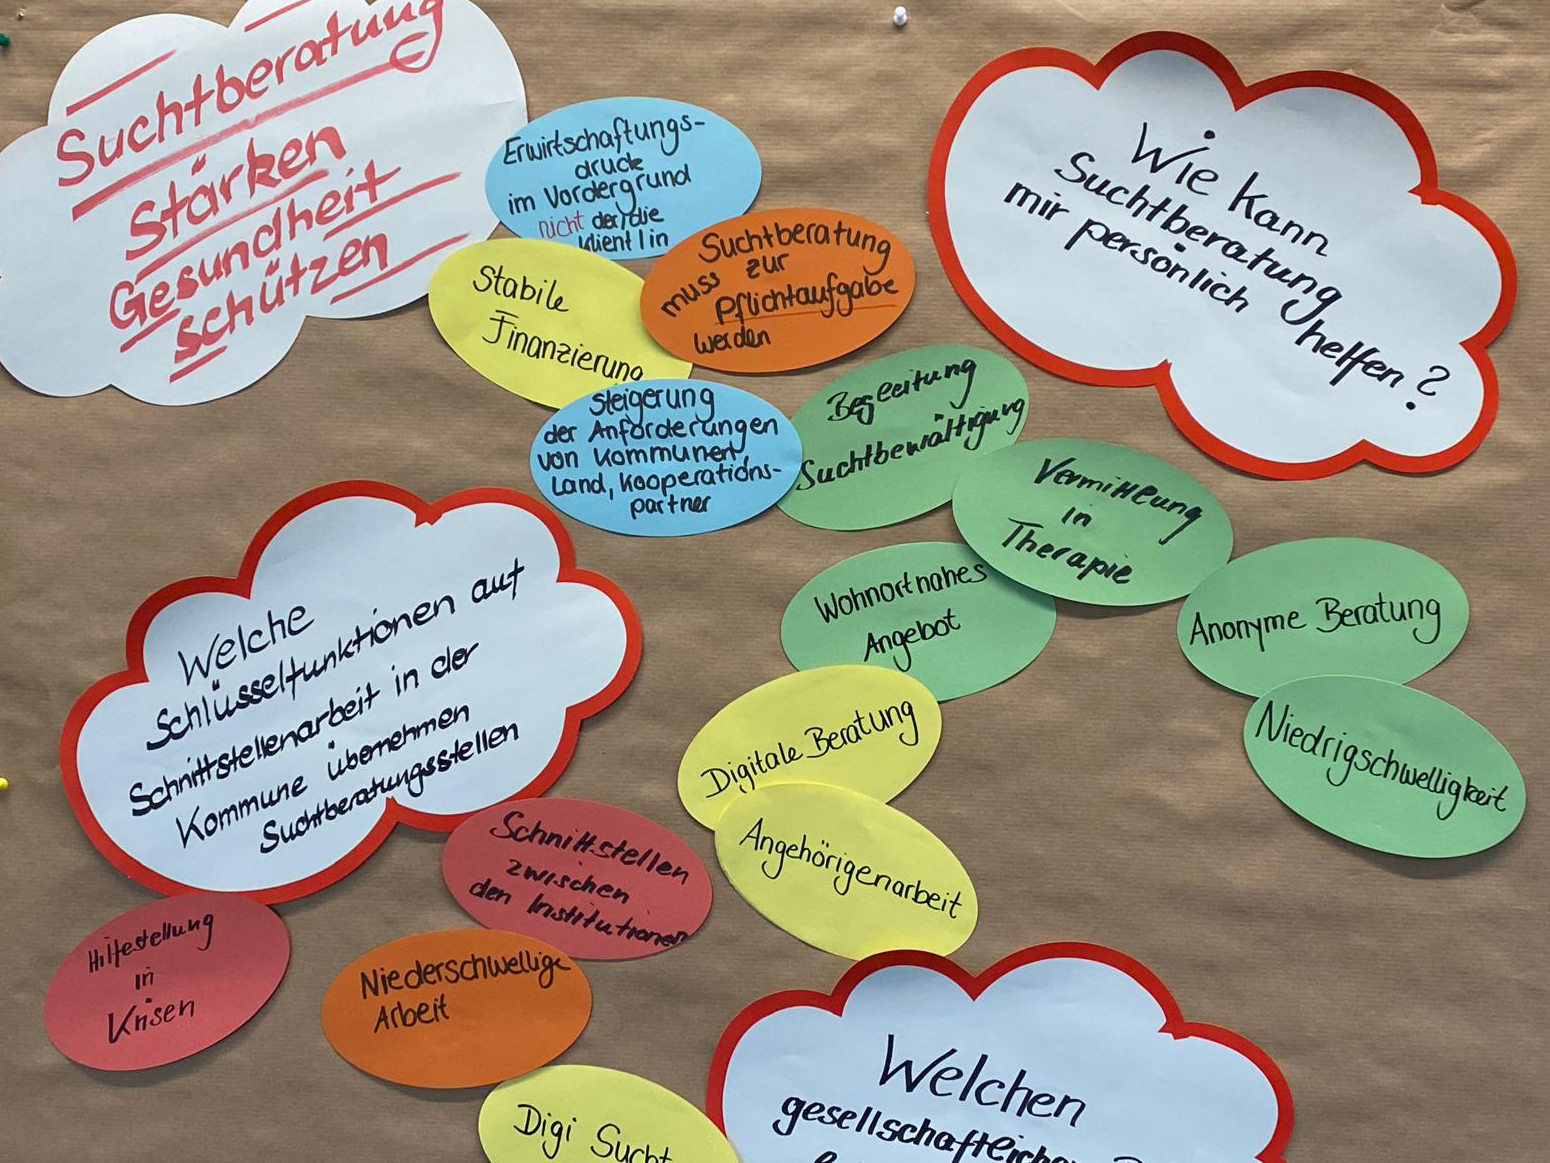 Suchtberatung
Stärken
Gesundheit
schützen
Erwirtschaftungs-
druck
im Vordergrund
nicht der/die
Klient I in
Stabile
Finanzierung
Suchtberatung
muss zur
Pflichtaufgabe
werden
Steigerung
der Anforderungen
von Kommunen,
Land, Kooperations-
partner
Wie kann
Suchtberatung
mir persönlich
helfen?
Begleitung
Suchtbewältigung
Vermittlung
in
Therapie
Wohnortnahes
Angebot
Anonyme Beratung
Niedrigschwelligkeit
Digitale Beratung
Angehörigenarbeit
Welche
Schlüsselfunktionen auf
Schnittstellenarbeit in der
Kommune übernehmen
Suchtberatungsstellen
Schnittstellen
zwischen
den Institutionen
Hilfestellung
in
Krisen
Niederschwellige
Arbeit
Digi Sucht
Welchen